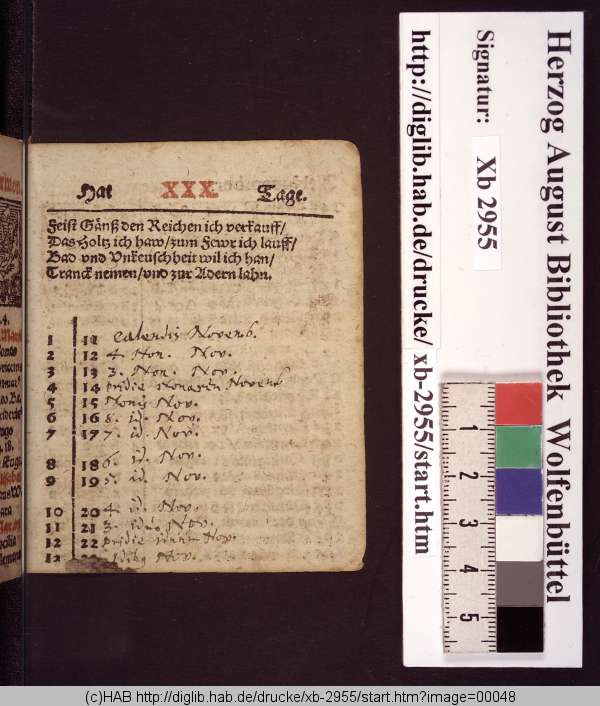 Hat XXX. Tage.
Feist Gänß den Reichen ich verkauff/
Das Holtz ich haw/zum Fewr ich lauff/
Bad vnd Vnkeuschheit wil ich han/
Tranck nemen/vnd zur Adern lahn.
1 11 Calendis Novemb.
2 12 4. Non. Nov.
3 13 3. Non. Nov.
4 14 pridie Nonarum Novemb
5 15 Nonis Nov.
6 16 8. id. Nov.
7 17 7. id. Nov.
8 18 6. id. Nov.
9 19 5. id. Nov.
10 20 4. id. Nov.
11 21 3. idus Nov.
12 22 pridie iduum Nov.
13 Idibus Nov.
Herzog August Bibliothek Wolfenbüttel
Signatur: Xb 2955
http://diglib.hab.de/drucke/ xb-2955/start.htm
1
2
3
4
5
(c)HAB http://diglib.hab.de/drucke/xb-2955/start.htm?image=00048